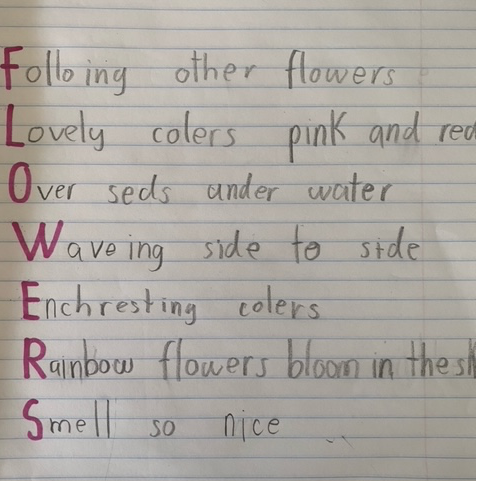 Folloing other flowers
Lovely colers pink and red
Over seds under water
Waveing side to side
Enchresting colers
Rainbow flowers bloom in the
Smell so nice